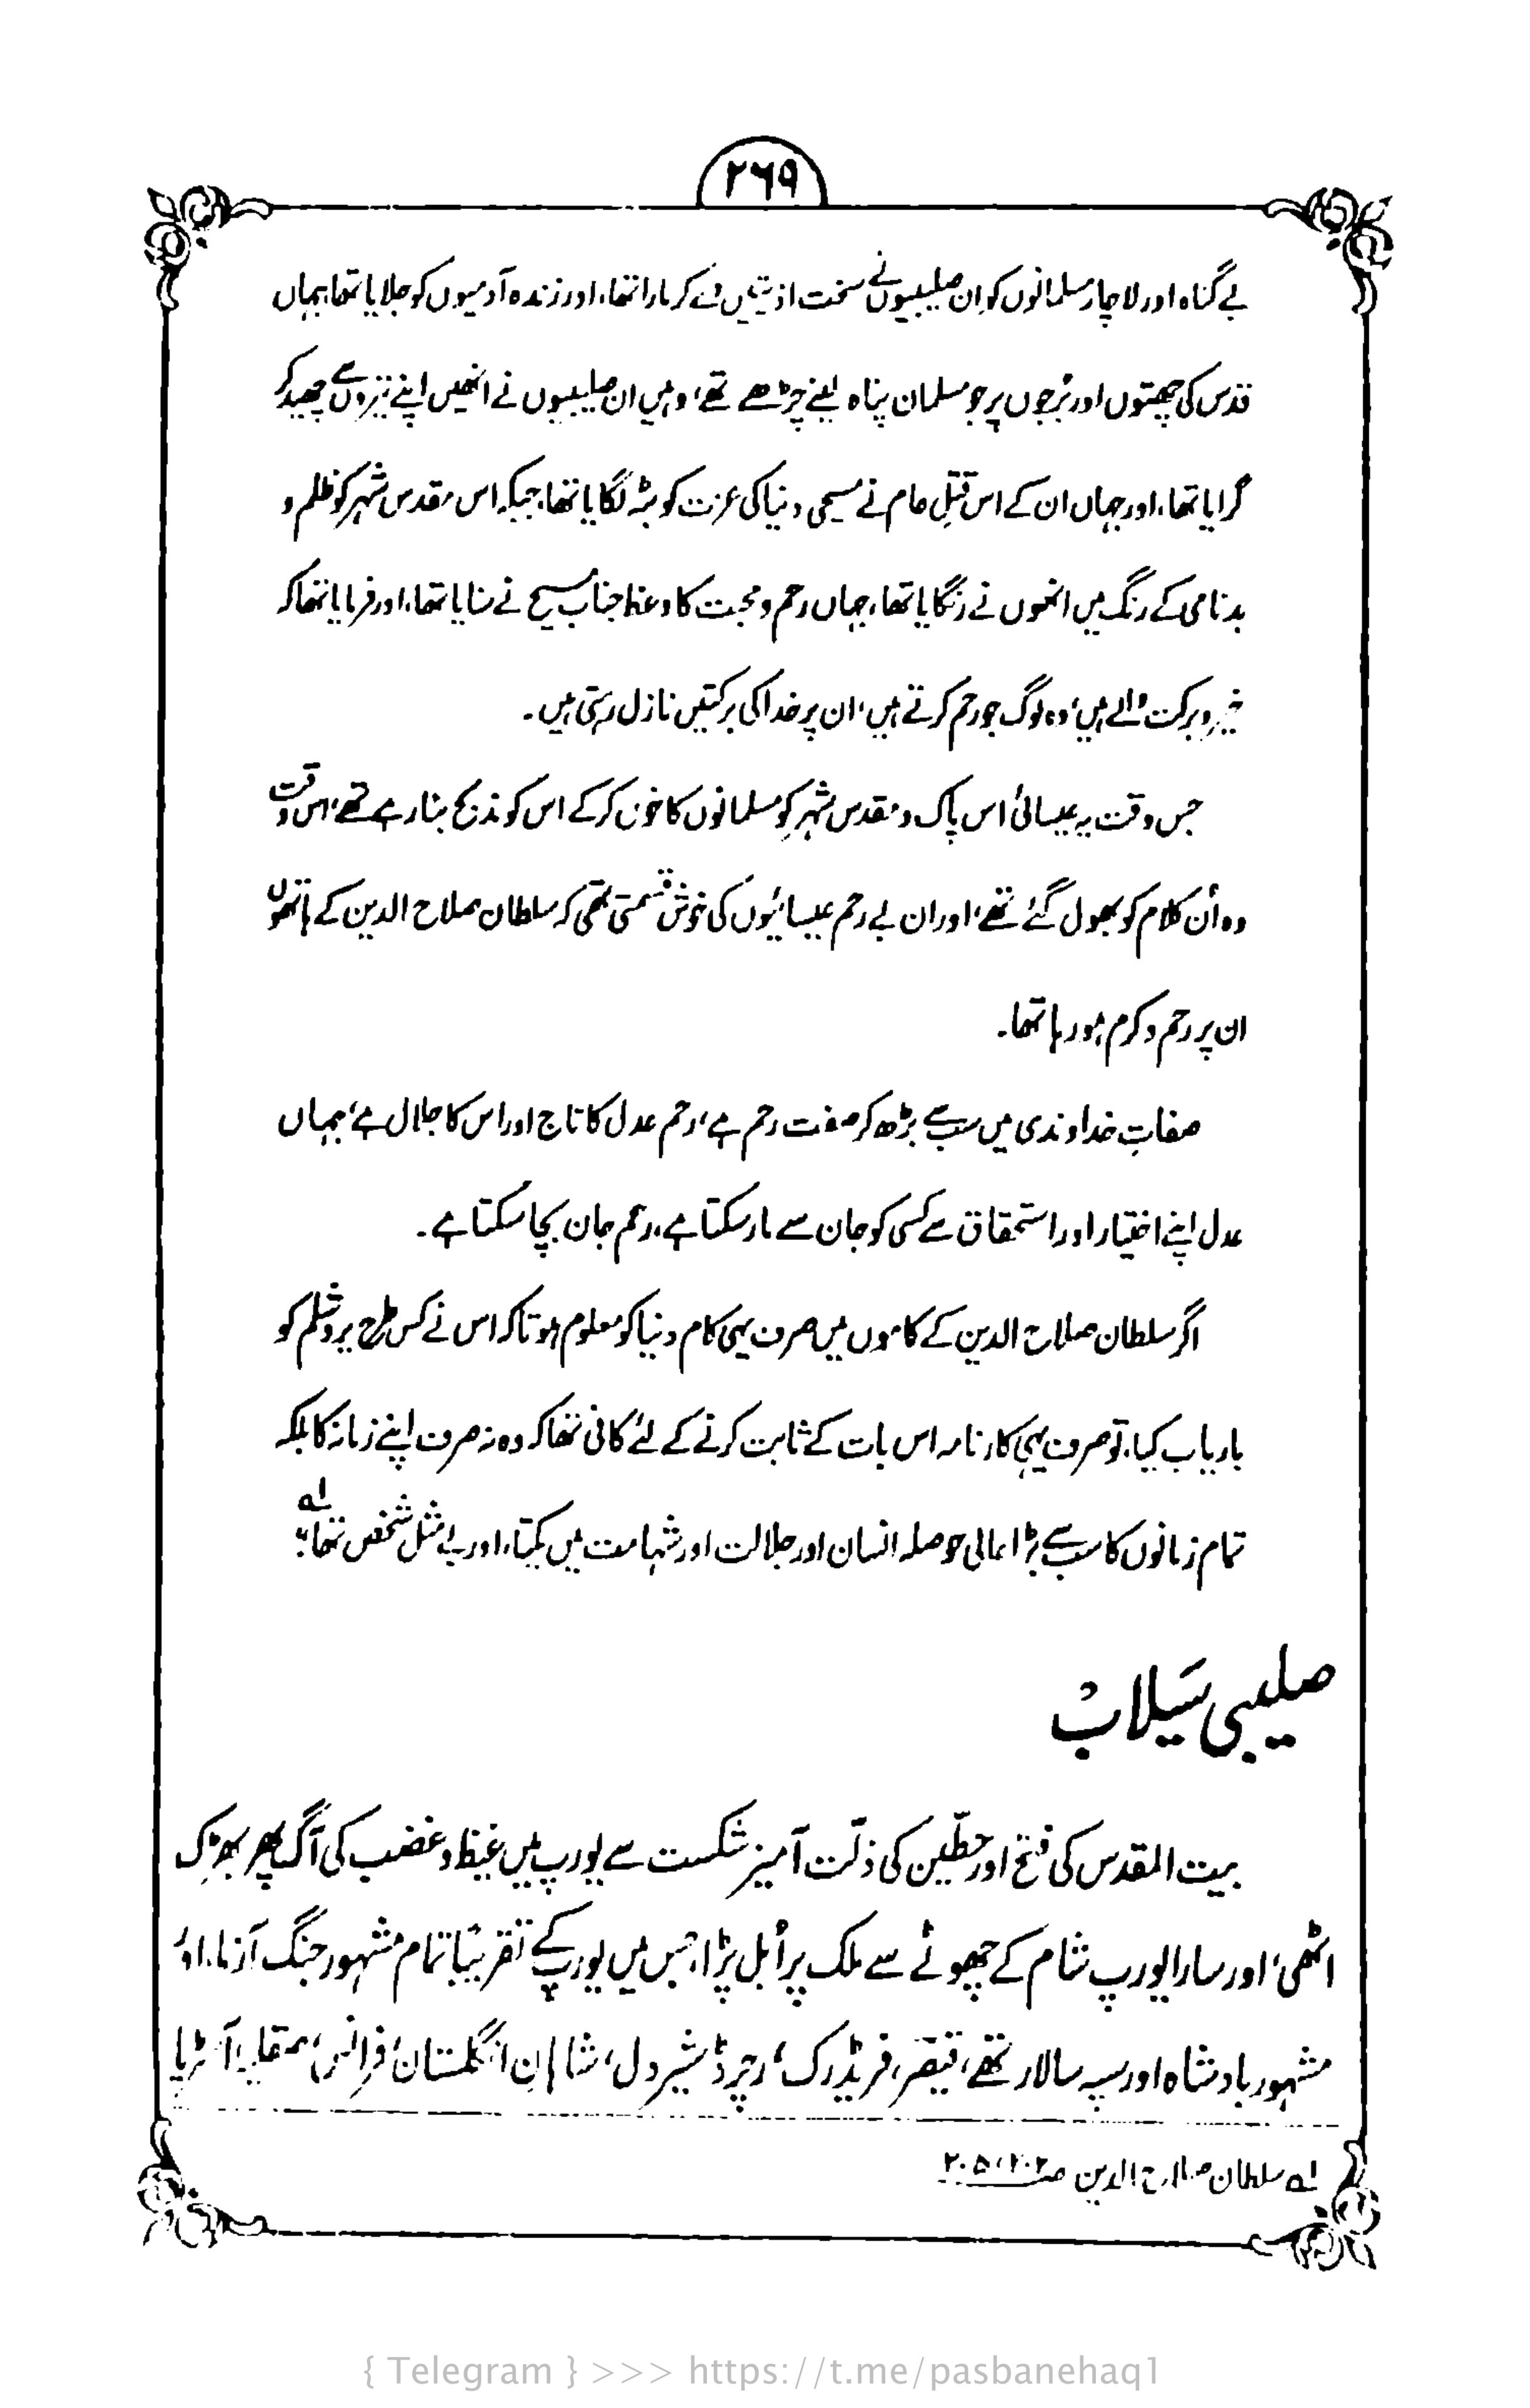 ۲۶۹
بے گناہ اور لاچار مسلمانوں کو اِن صلیبیوں نے سخت اذیتیں دے کر مارا تھا، اور زندہ آدمیوں کو جلایا تھا، جہاں
قدس کی چھتوں اور بُرجوں پر جو مسلمان پناہ لینے چڑھے تھے، وہیں ان صلیبیوں نے انھیں اپنے تیروں سے چھید کر
گرایا تھا، اور جہاں ان کے اس قتلِ عام نے مسیحی دنیا کی عزت کو بٹہ لگایا تھا، جبکہ اس مقدس شہر کو ظلم و
بدنامی کے رنگ میں انھوں نے رنگایا تھا، جہاں رحم و محبت کا وعظ جناب مسیح نے سنایا تھا، اور فرمایا تھا کہ
خیر و برکت والے ہیں، وہ لوگ جو رحم کرتے ہیں، ان پر خدا کی برکتیں نازل رہتی ہیں۔
جس وقت یہ عیسائی اس پاک و مقدس شہر کو مسلمانوں کا خون کرکے اس کو مذبح بنا رہے تھے، اس وقت
وہ اُن کلام کو بھول گئے تھے، اور ان بے رحم عیسائیوں کی خوش قسمتی تھی کہ سلطان صلاح الدین کے ہاتھوں
ان پر رحم و کرم ہو رہا تھا۔
صفاتِ خداوندی میں سب سے بڑھ کر صفت رحم ہے، رحم عدل کا تاج اور اس کا جلال ہے، جہاں
عدل اپنے اختیار اور استحقاق سے کسی کو جان سے مار سکتا ہے، رحم جان بچا سکتا ہے۔
اگر سلطان صلاح الدین کے کاموں میں صرف یہی کام دنیا کو معلوم ہوتا کہ اس نے کس طرح یروشلم کو
باریاب کیا، تو صرف یہی کارنامہ اس بات کے ثابت کرنے کے لئے کافی تھا کہ وہ نہ صرف اپنے زمانہ کا بلکہ
تمام زمانوں کا سب سے بڑا عالی حوصلہ انسان اور جلالت اور شہامت میں یکتا، اور بے مثل شخص تھا" لہ
صلیبی سَیلابْ
بیت المقدس کی فتح اور حطّین کی ذلّت آمیز شکست سے یورپ میں غیظ و غضب کی آگ پھر بھڑک
اٹھی، اور سارا یورپ شام کے چھوٹے سے ملک پر اُبل پڑا، جس میں یورپ کے تقریبًا تمام مشہور جنگ آزما، اور
مشہور بادشاہ اور سپہ سالار تھے، قیصر، فریڈرک، رچرڈ شیر دل، شاہانِ انگلستان، فرانس، صقلیہ، آسٹریا
لہ سلطان صلاح الدین صـ ۲۰۵،۲۰۲
{ Telegram } >>> https://t.me/pasbanehaq1